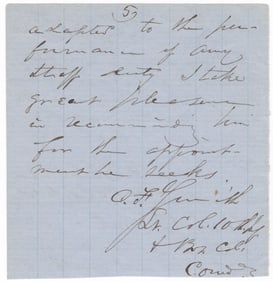 (5)
adapted to the per-
formance of any
staff duty I take
great pleasure
in recommending him
for the appoint-
ment he seeks.
C. F. Smith
Lt. Col. 10 Inf
& Bv. Col.
Comd